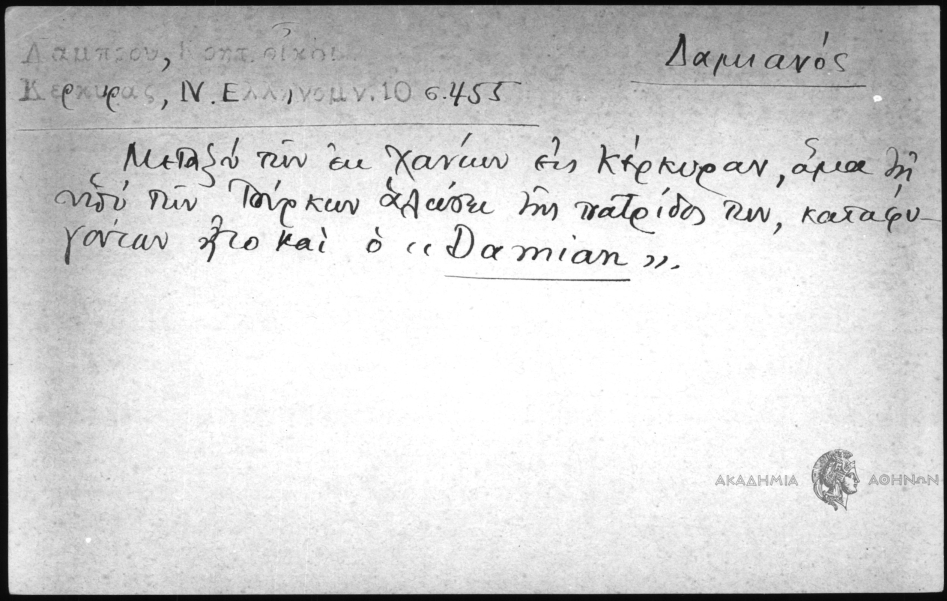 Δαμιανός
Λάμπρου, Κρητ. οἶκοι
Κερκύρας, Ν. Ἑλληνομν. 10 σ. 455
Μεταξὺ τῶν ἐκ Χανίων εἰς Κέρκυραν, ἅμα τῇ
ὑπὸ τῶν Τούρκων ἁλώσει τῆς πατρίδος των, καταφυ-
γόντων ἦτο καὶ ὁ «Damian».
ΑΚΑΔΗΜΙΑ ΑΘΗΝΩΝ